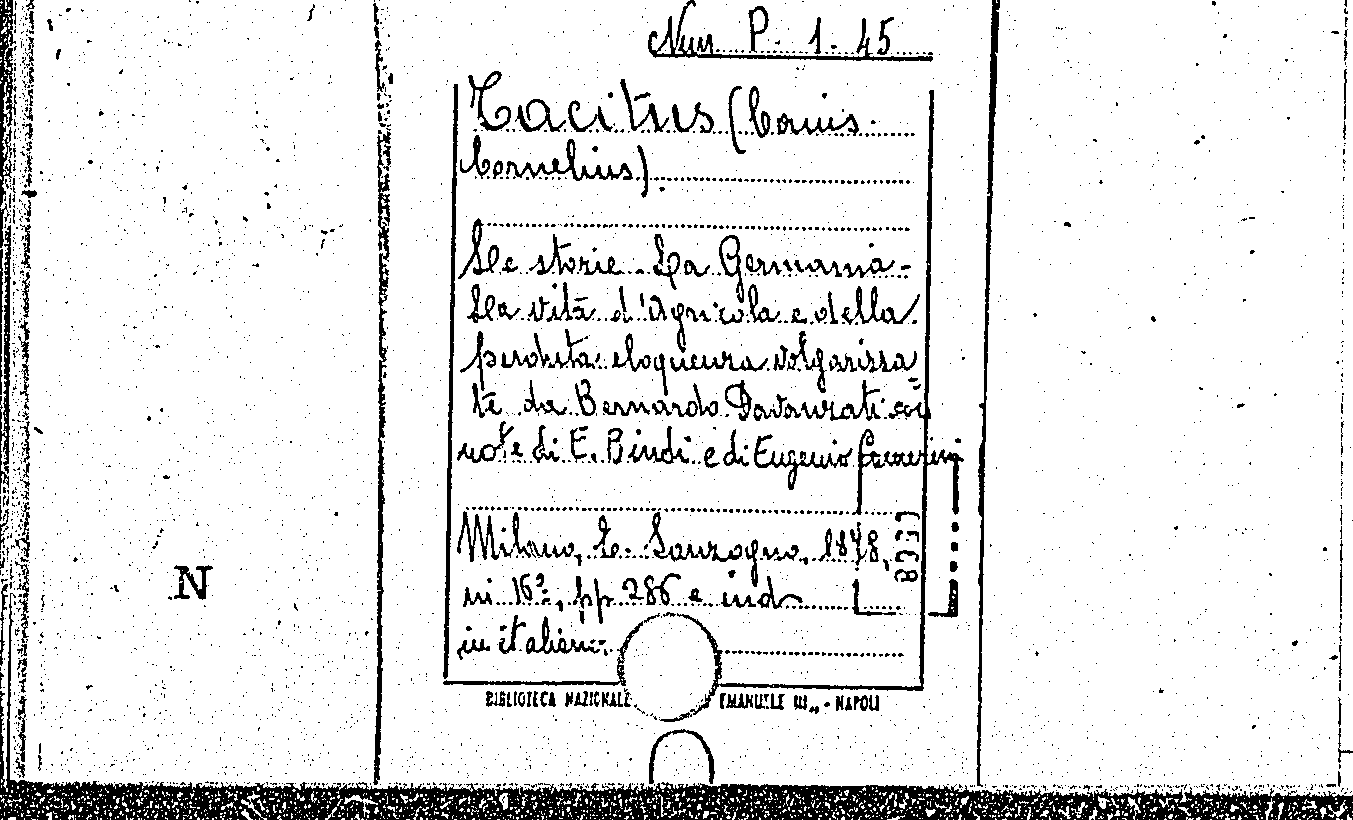 Num P. 1. 45
Tacitus (Caius
Cornelius).
Le storie. La Germania-
La vita d'Agricola e della
perduta eloquenza volgarizza=
te da Bernardo Davanzati con
note di E. Bindi e di Eugenio Camerini
Milano, E. Sonzogno, 1878,
in 16º, pp 286 e ind
in italiano
BIBLIOTECA NAZIONALE EMANUELE III„ - NAPOLI
N